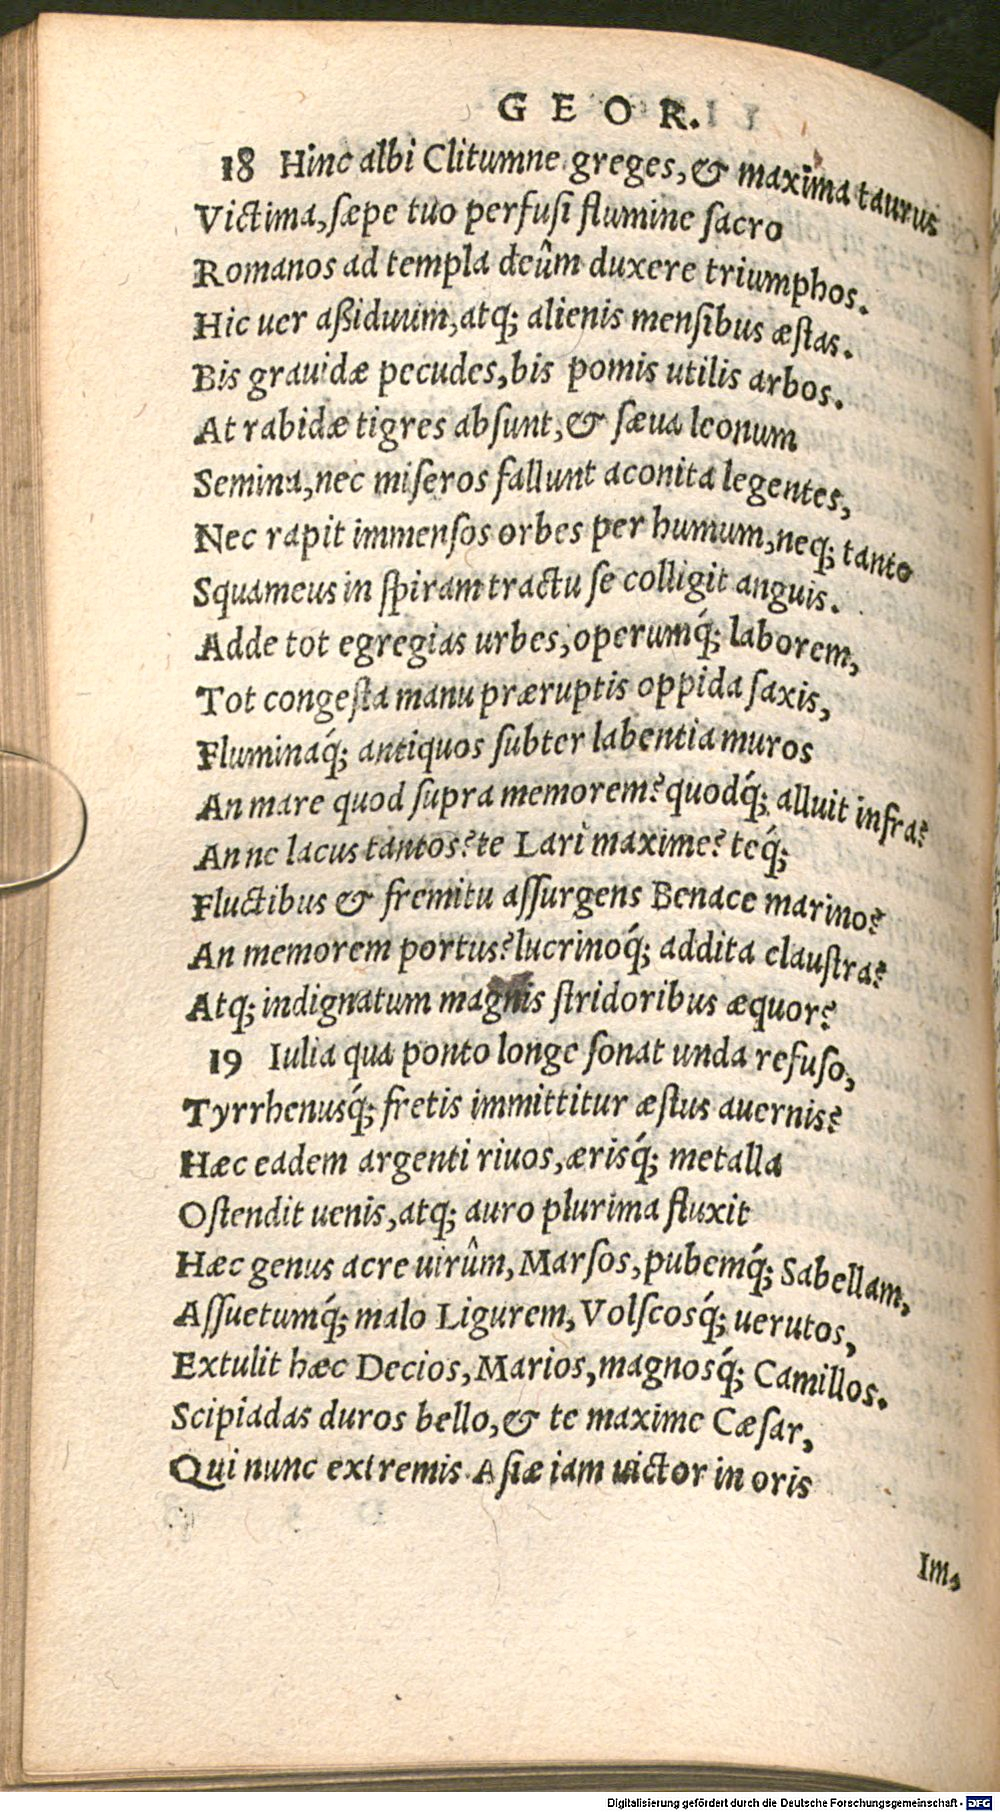 GEOR.
18 Hinc albi Clitumne greges, & maxima taurus
Victima, sæpe tuo perfusi flumine sacro
Romanos ad templa deûm duxere triumphos.
Hic uer aßiduum, atq; alienis mensibus æstas.
Bis grauidæ pecudes, bis pomis utilis arbos.
At rabidæ tigres absunt, & sæua leonum
Semina, nec miseros fallunt aconita legentes,
Nec rapit immensos orbes per humum, neq; tanto
Squameus in spiram tractu se colligit anguis.
Adde tot egregias urbes, operumq́; laborem,
Tot congesta manu præruptis oppida saxis,
Fluminaq́; antiquos subter labentia muros
An mare quod supra memorem? quodq́; alluit infra?
An ne lacus tantos? te Lari maxime? teq́;
Fluctibus & fremitu assurgens Benace marino?
An memorem portus? lucrinoq́; addita claustra?
Atq; indignatum magnis stridoribus æquor?
19 Iulia qua ponto longe sonat unda refuso,
Tyrrhenusq́; fretis immittitur æstus auernis?
Hæc eadem argenti riuos, ærisq́; metalla
Ostendit uenis, atq; auro plurima fluxit
Hæc genus acre uirûm, Marsos, pubemq́; Sabellam,
Assuetumq́; malo Ligurem, Volscosq́; uerutos,
Extulit hæc Decios, Marios, magnosq́; Camillos.
Scipiadas duros bello, & te maxime Cæsar,
Qui nunc extremis Asiæ iam uictor in oris
Im,
Digitalisierung gefördert durch die Deutsche Forschungsgemeinschaft - DFG